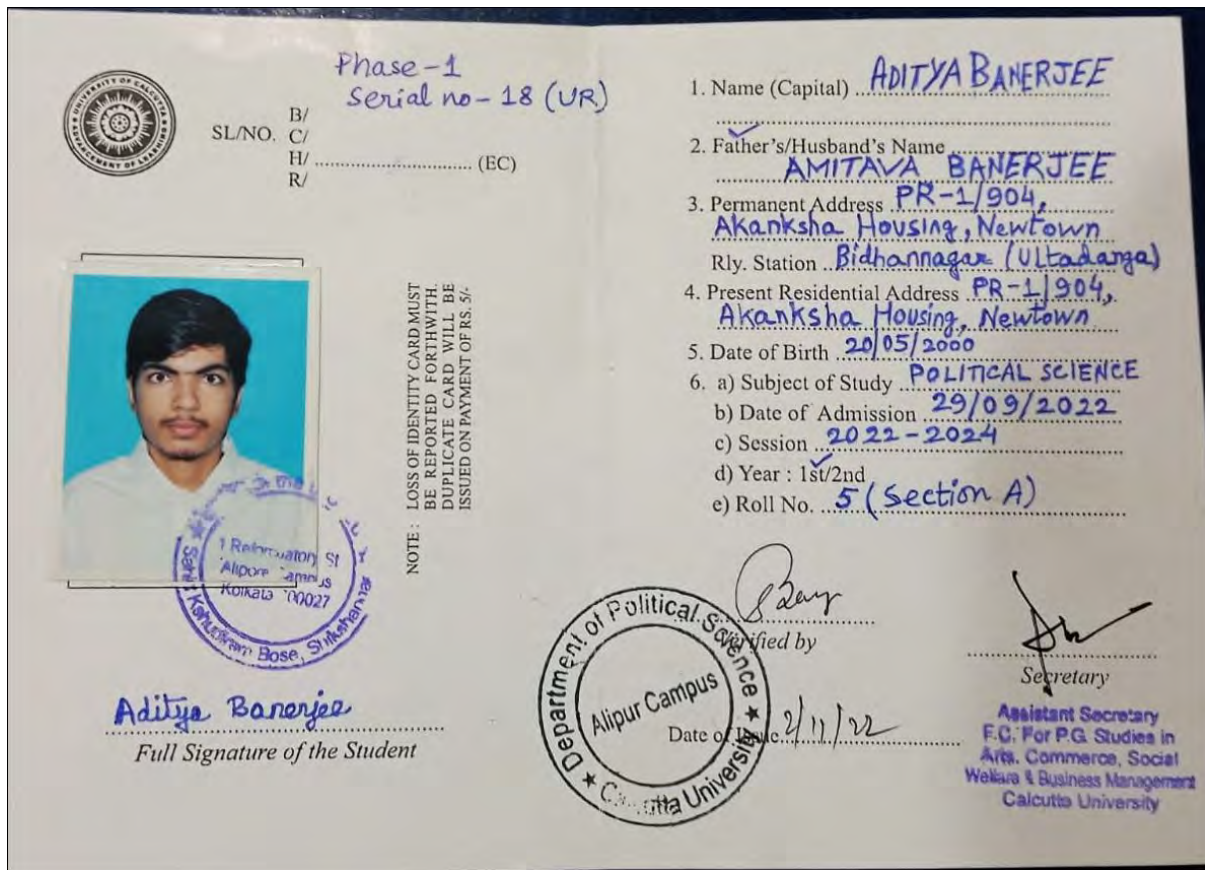 UNIVERSITY OF CALCUTTA
ADVANCEMENT OF LEARNING
Phase-1
Serial no- 18 (UR)
SL/NO. B/
C/
H/ .................... (EC)
R/
NOTE : LOSS OF IDENTITY CARD MUST
BE REPORTED FORTHWITH.
DUPLICATE CARD WILL BE
ISSUED ON PAYMENT OF RS. 5/-
1 Reformatory St
Alipore Campus
Kolkata 700027
Kshudiram Bose,
Aditya Banerjee
Full Signature of the Student
1. Name (Capital) ADITYA BANERJEE
2. Father's/Husband's Name
AMITAVA BANERJEE
3. Permanent Address PR-1/904,
Akanksha Housing, Newtown
Rly. Station Bidhannagar (Ultadanga)
4. Present Residential Address PR-1/904,
Akanksha Housing, Newtown
5. Date of Birth 20/05/2000
6. a) Subject of Study POLITICAL SCIENCE
b) Date of Admission 29/09/2022
c) Session 2022-2024
d) Year : 1st/2nd
e) Roll No. 5 (Section A)
Verified by
Department of Political Science
Alipur Campus
Calcutta University
Date of Issue 2/11/22
Secretary
Assistant Secretary
F.C. For P.G. Studies in
Arts. Commerce, Social
Welfare & Business Management
Calcutta University